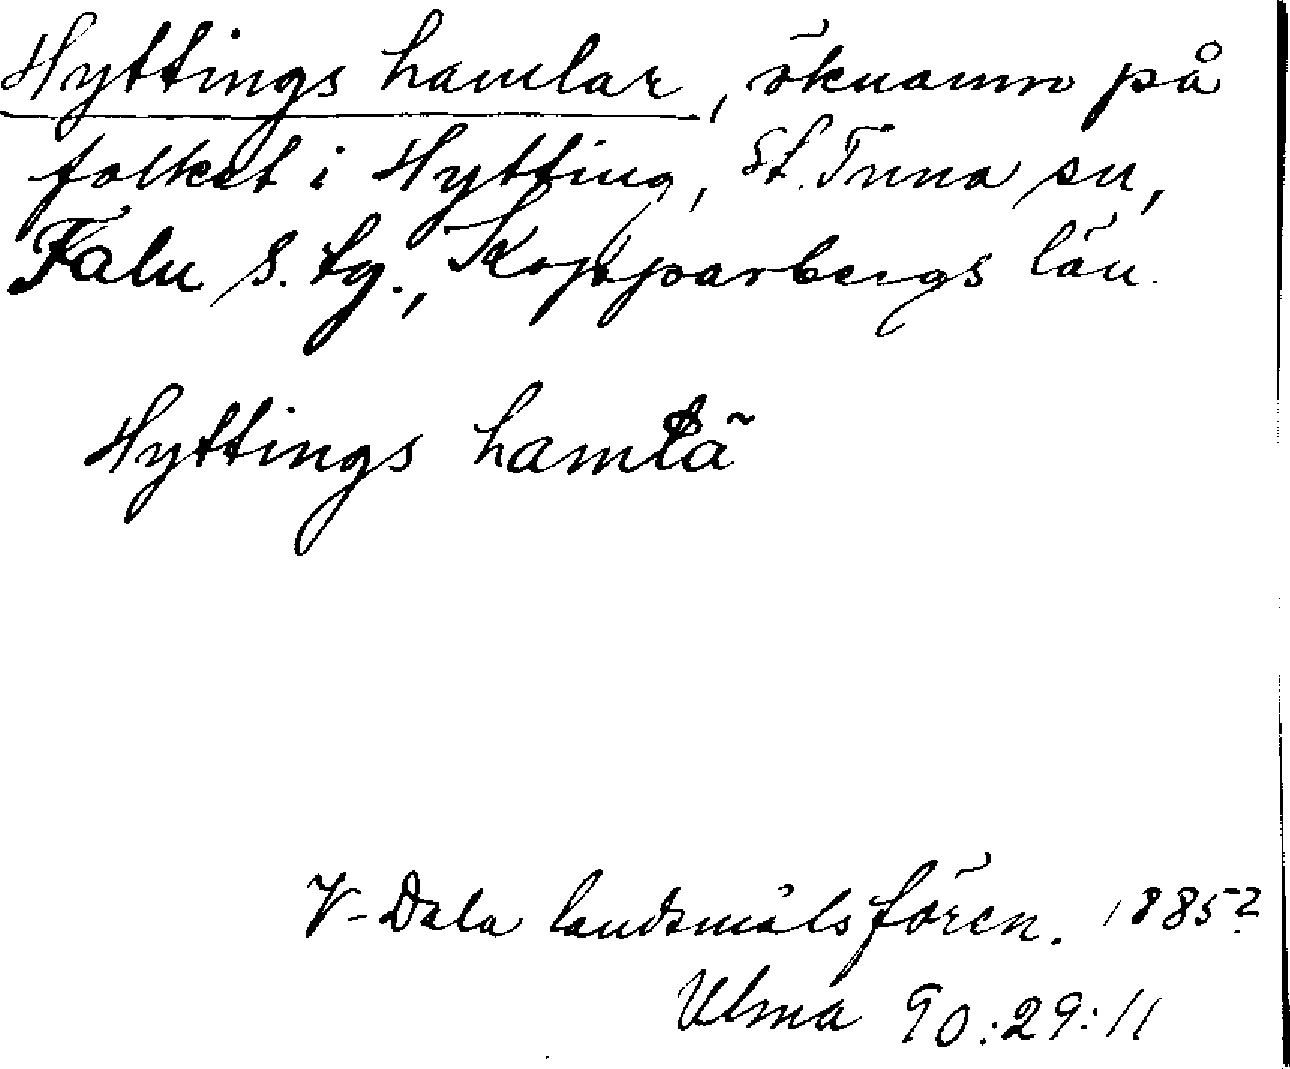 Hyttings hamlar, öknamn på
folket i Hytting, St. Tuna sn,
Falu s. tg., Kopparbergs län.
Hyttings
V-Dala landsmålsfören. 1885?
Ulma 90:29:11